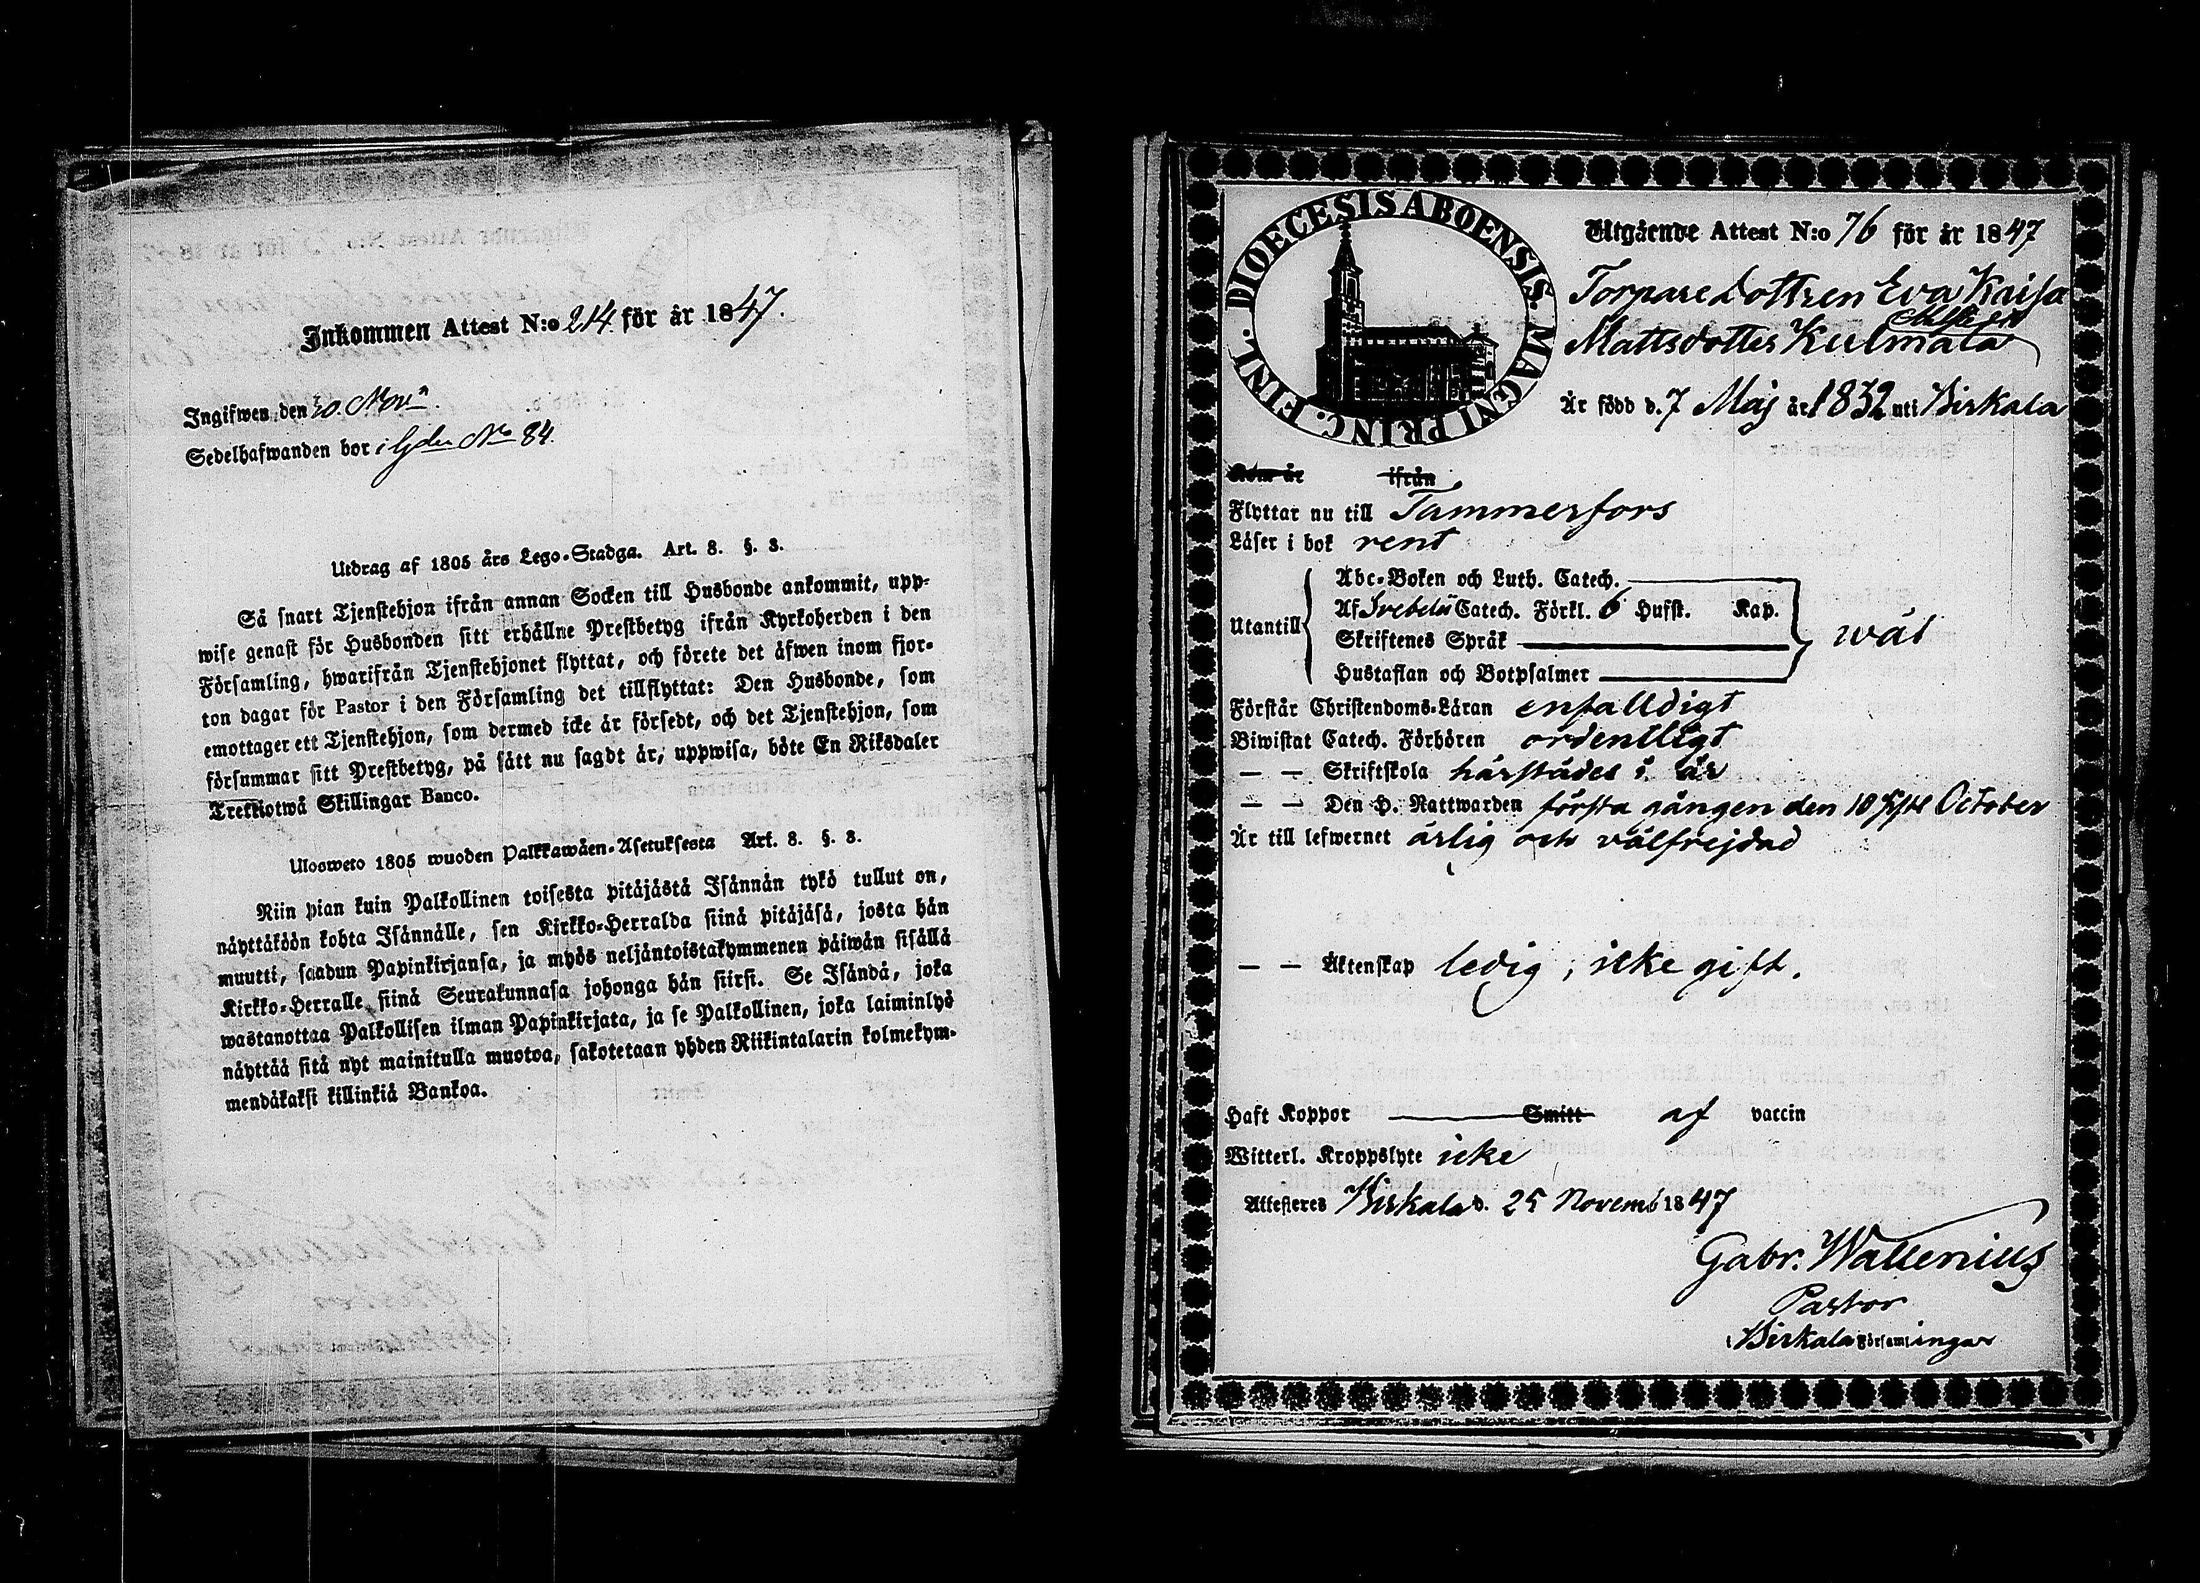 Inkommen Attest N:o 214 för år 1847.
Ingifwen den 30 Nov
Sedelhafwanden bor i Gden No 84.
Utdrag af 1805 års Lego-Stadga. Art. 8. §. 3.
Så snart Tjenstehjon ifrån annan Socken till Husbonde ankommit, upp-
wise genast för Husbonden sitt erhållne Prestbetyg ifrån Kyrkoherden i den
Församling, hwarifrån Tjenstehjonet flyttat, och förete det äfwen inom fjor-
ton dagar för Pastor i den Församling det tillflyttat: Den Husbonde, som
emottager ett Tjenstehjon, som dermed icke är försedt, och det Tjenstehjon, som
försummar sitt Prestbetyg, på sätt nu sagdt är, uppwisa, böte En Riksdaler
Trettiotwå Skillingar Banco.
Ulosweto 1805 wuoden Palkkawäen-Asetuksesta Art. 8. §. 3.
Niin pian kuin Palkollinen toisesta pitäjästä Isännän tykö tullut on,
näyttäköön kohta Isännälle, sen Kirkko-Herralda siinä pitäjäsä, josta hän
muutti, saadun Papinkirjansa, ja myös neljäntoistakymmenen päiwän sisällä
Kirkko-Herralle siinä Seurakunnasa johonga hän siirsi. Se Isändä, joka
wastanottaa Palkollisen ilman Papinkirjata, ja se Palkollinen, joka laiminlyö
näyttää sitä nyt mainitulla muotoa, sakotetaan yhden Riikintalarin kolmekym-
mendäkaksi killinkiä Bankoa.
DIOECESIS ABOENSIS. MAGNI PRINC. FINL.
Utgående Attest N:o 76 för år 1847
Torparedottren Eva Kaisa
Mattsdotter Kulmala
Är född d. 7 Maj år 1832 uti Birkala
Kom år ifrån
Flyttar nu till Tammerfors
Läser i bok rent
Abc-Boken och Luth. Catech.
Utantill Af Svebelii Catech. Förkl. 6 Hufst. Kap. wäl
Skriftenes Språk
Hustaflan och Botpsalmer
Förstår Christendoms-Läran enfalldigt
Biwistat Catech. Förhören ordentligt
— — Skriftskola härstädes i år
— — Den H. Nattwarden första gången den 10 sistl October
Är till lefwernet ärlig och välfrejdad
— — Äktenskap ledig, icke gift.
Haft Koppor Smitt af vaccin
Witterl. Kroppslyte icke
Attesteres Birkala d. 25 Novemb 1847
Gabr. Wallenius
Pastor
i Birkala Församlingar